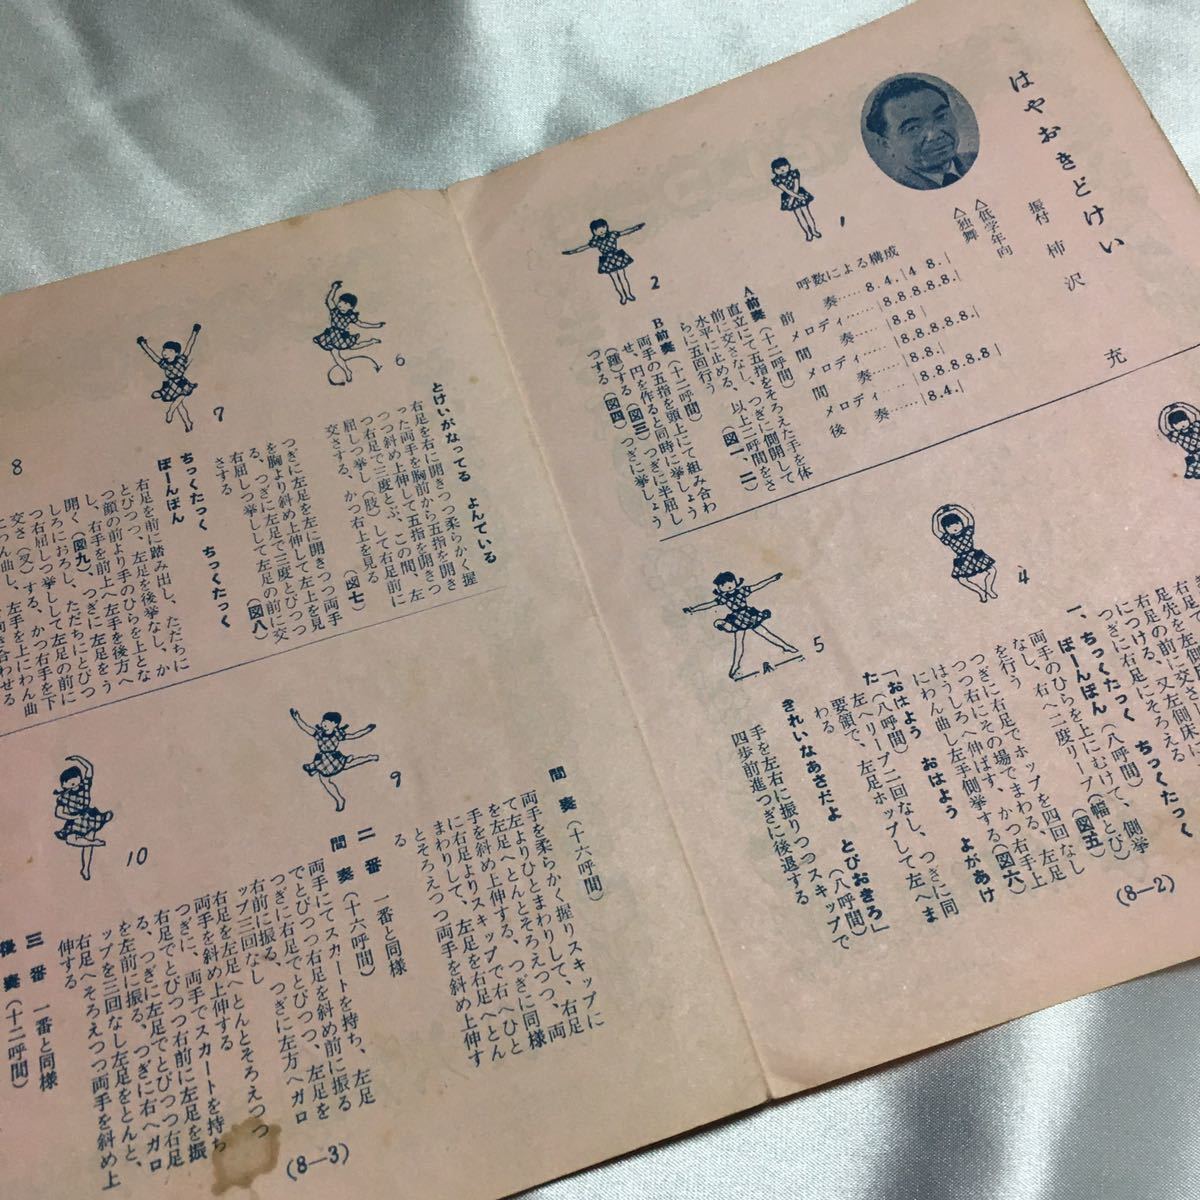 はやおきどけい
振付 柿沢 充
△低学年向
△独舞
呼数による構成
前奏……8.4.|4 8.|
メロディ……|8.8.8.8.8.|
間奏……|8.8|
メロディ……|8.8.8.8.8.|
間奏……|8.8.|
メロディ……|8.8.8.8.8|
後奏……|8.4.|
A前奏(十二呼間)
直立にて五指をそろえた手を体
前に交さなし、つぎに側開して
水平に止める、以上二呼間をさ
らに五回行う(図一、二)
B前奏(十二呼間)
両手の五指を頭上にて組み合わ
せ、円を作ると同時に挙しょう
(踵)する(図三)つぎに半屈し
つぎに挙しょう
する(図四)
1
2
4
5
右足の前に交さし、
足先を左側床に
右足の前に、又左側床に
につける、
つぎに右足にそろえる
一、ちっくたっく ちっくたっく
ぼーんぼん(八呼間)
両手のひらを上にむけて、側挙
なし、右へ二度リープ(幅とび)
を行う(図五)
つぎに右足でホップを四回なし
つつ右にその場でまわる、左足
はうしろへ伸ばす、かつ右手上
にわん曲し左手側挙する(図六)
「おはよう おはよう よがあけ
た(八呼間)
左へリープ二回なし、つぎに同
要領で、左足ホップして左へま
わる
きれいなあさだよ とびおきろ」
(八呼間)
手を左右に振りつつスキップで
四歩前進つぎに後退する
(8—2)
6
7
8
とけいがなってる よんでいる
右足を右に開きつつ柔らかく握
った両手を胸前から五指を開き
つつ斜め上伸して左上を見
つつ右足で三度とぶ、この間、左
屈しつつ挙し(肢)して右足前に
交さする、かつ右上を見る
(図七)
つぎに左足を左に開きつつ両手
を胸より斜め上伸して左上を見
る、つぎに左足で三度とびつつ
右屈しつつ挙しして左足の前に交
さする(図八)
ちっくたっく ちっくたっく
ぼーんぼん
右足を前に踏み出し、ただちに
とびつつ、左足を後挙なし、か
つ顔の前より手のひらを上とな
し、右手を前上へ左手を後方へ
開く(図九)、つぎに左足をう
しろにおろし、ただちにとびつ
つ右屈しつつ挙しして左足の前に
交さ(叉)する、かつ右手を下
にわん曲し、左手を上にわん曲
9
10
間奏(十六呼間)
両手を柔らかく握りスキップに
て左よりひとまわりして、右足
を左足へとんとそろえつつ、両
手を斜め上伸する、つぎに同様
に右足よりスキップで右へひと
まわりして、左足を右足へとん
とそろえつつ両手を斜め上伸す
る
二番 一番と同様
間奏(十六呼間)
両手にてスカートを持ち、左足
でとびつつ右足を斜め前に振る
つぎに右足でとびつつ、左足を
右前に振る、つぎに左方へガロ
ップ三回なし
右足を左足へとんとそろえつつ
両手を斜め上伸する
つぎに、両手でスカートを持ち
右足でとびつつ右前に左足を振
る、つぎに左足でとびつつ右足
を左前に振る、つぎに右へガロ
ップを三回なし左足をとんと、
右足へそろえつつ両手を斜め上
伸する
三番 一番と同様
後奏(十二呼間)
(8—3)